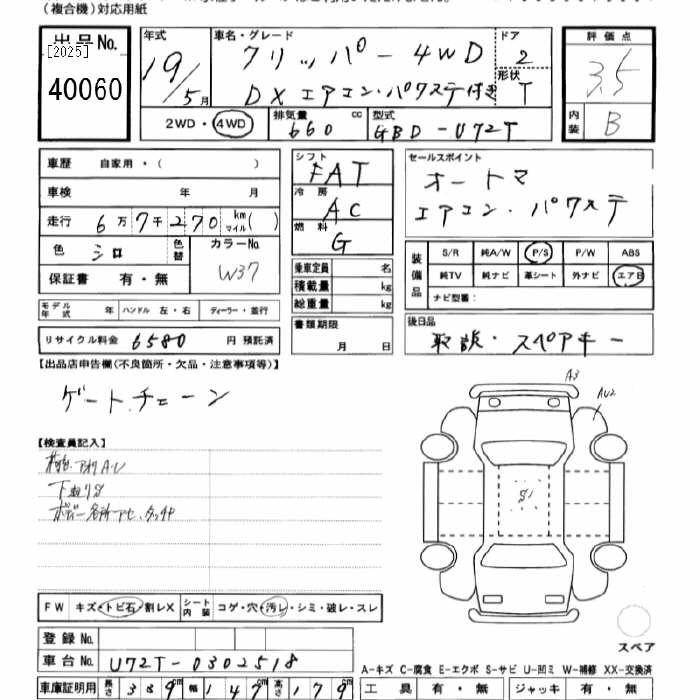 (複合機)対応用紙
出品No. [2025] 40060
年式 19/5月
車名・グレード クリッパー 4WD DX エアコン・パワステ付き
ドア 2
形状 T
評価点 3.5
内装 B
2WD・4WD
排気量 660 cc
型式 GBD-U72T
車歴 自家用・( )
車検 年 月
走行 6万7千270 km マイル( )
色 シロ 色替
カラーNo. W37
保証書 有・無
モデル年式 年 ハンドル 左・右 ディーラー・並行
リサイクル料金 6580 円 預託済
シフト FAT
冷房 AC
燃料 G
乗車定員 名
積載量 kg
総重量 kg
書類期限 月 日
セールスポイント
オートマ
エアコン・パワステ
装備品 S/R 純A/W P/S P/W ABS
純TV 純ナビ 革シート 外ナビ エアB
ナビ型番:
後日品
取説・スペアキー
【出品店申告欄(不良箇所・欠品・注意事項等)】
ゲートチェーン
【検査員記入】
下廻りS
FW キズ・トビ石・割レX シート内装 コゲ・穴・汚レ・シミ・破レ・スレ
登録No.
車台No. U72T-0302518
車庫証明用 長さ 339cm 幅 147cm 高さ 179cm
A3
AU2
S1
スペア
A-キズ C-腐食 E-エクボ S-サビ U-凹ミ W-補修 XX-交換済
工具 有・無 ジャッキ 有・無